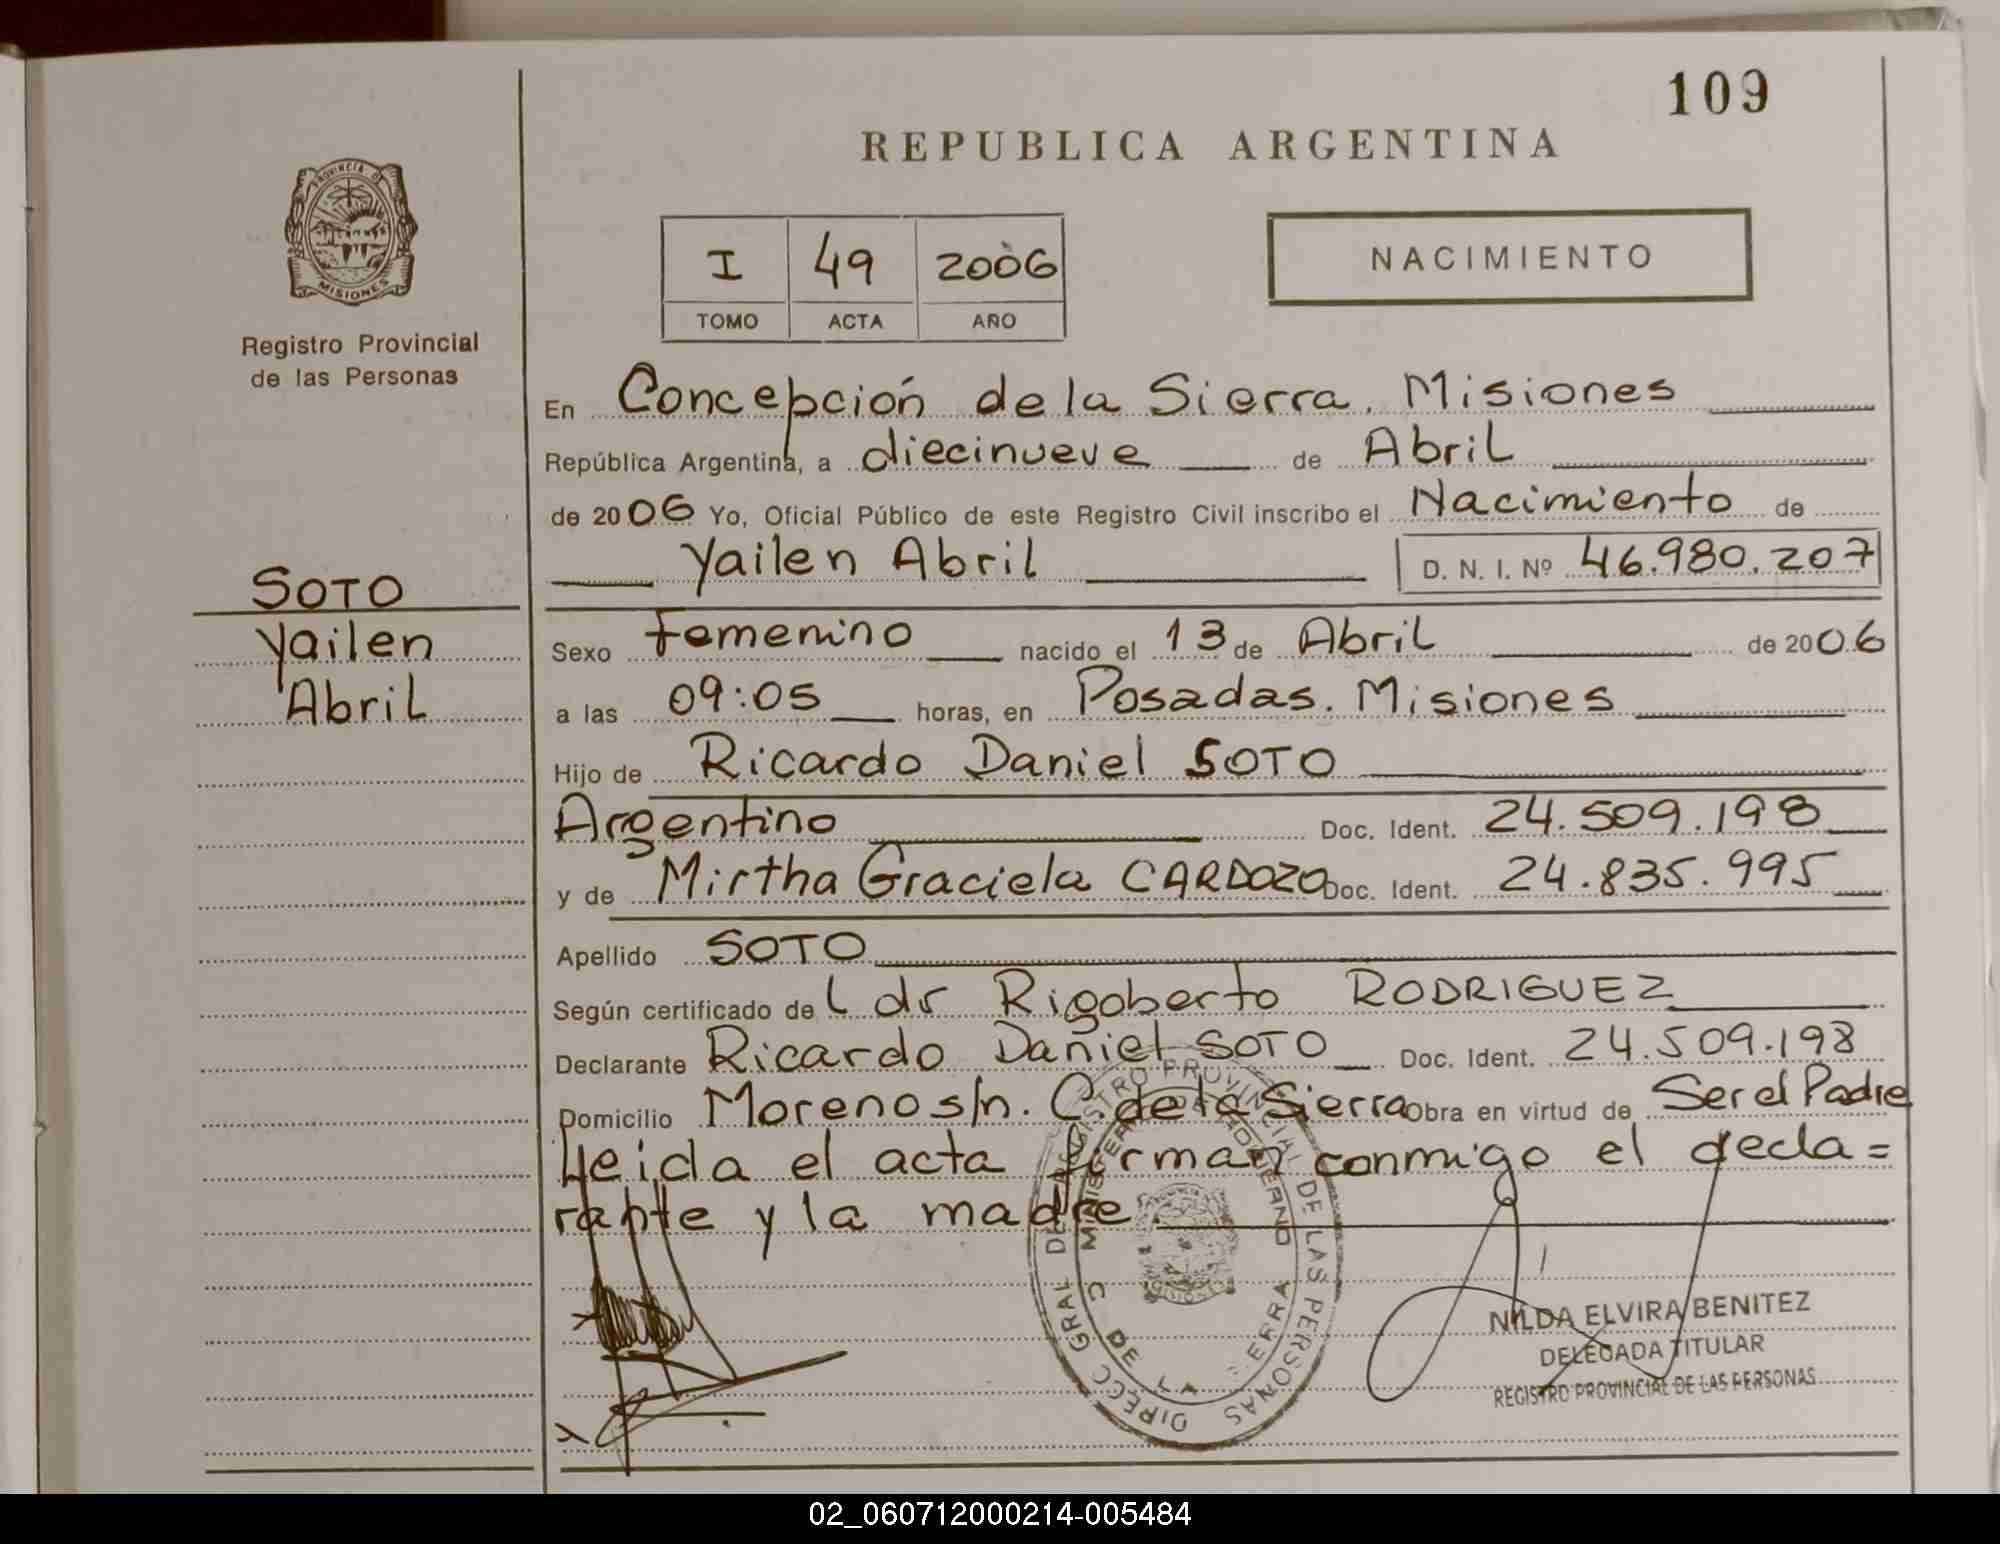 109
REPUBLICA ARGENTINA
PROVINCIA DE
MISIONES
Registro Provincial
de las Personas
I 49 2006
TOMO ACTA AÑO
NACIMIENTO
En Concepción de la Sierra. Misiones
República Argentina, a diecinueve de Abril
de 2006 Yo, Oficial Público de este Registro Civil inscribo el Nacimiento de
Yailen Abril D. N. I. Nº 46.980.207
SOTO
Yailen
Abril
Sexo Femenino nacido el 13 de Abril de 2006
a las 09:05 horas, en Posadas. Misiones
Hijo de Ricardo Daniel SOTO
Argentino Doc. Ident. 24.509.198
y de Mirtha Graciela CARDOZO Doc. Ident. 24.835.995
Apellido SOTO
Según certificado de Rigoberto RODRIGUEZ
Declarante Ricardo Daniel SOTO Doc. Ident. 24.509.198
Domicilio Moreno s/n. C. de la Sierra Obra en virtud de Ser el Padre
Leida el acta firman conmigo el decla=
rante y la madre.
NILDA ELVIRA BENITEZ
DELEGADA TITULAR
REGISTRO PROVINCIAL DE LAS PERSONAS
02_060712000214-005484